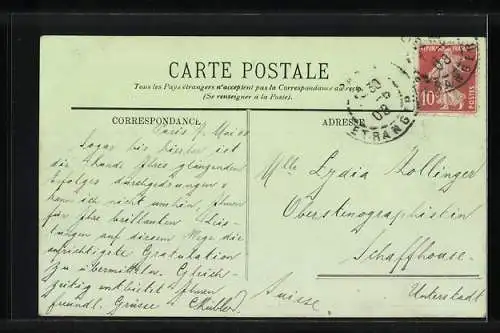 CARTE POSTALE
Tous les Pays étrangers n'acceptent pas la Correspondance au recto
(Se renseigner à la Poste).
CORRESPONDANCE
ADRESSE
Paris 7. Mai 08
bis hieher ist
die Kunde Ihres glänzenden
Erfolges durchgedrungen &
kann ich nicht umhin, Ihnen
für Ihre brillanten Leis-
tungen auf diesem Wege die
aufrichtigste Gratulation
zu übermitteln. Gleich-
zeitig entbietet Ihnen
freundl. Grüsse
Mlle Lydia Zollinger
Oberstenographistin
Schaffhouse.
Unterstadt
Suisse
10
POSTES
30
08
ETRANGER